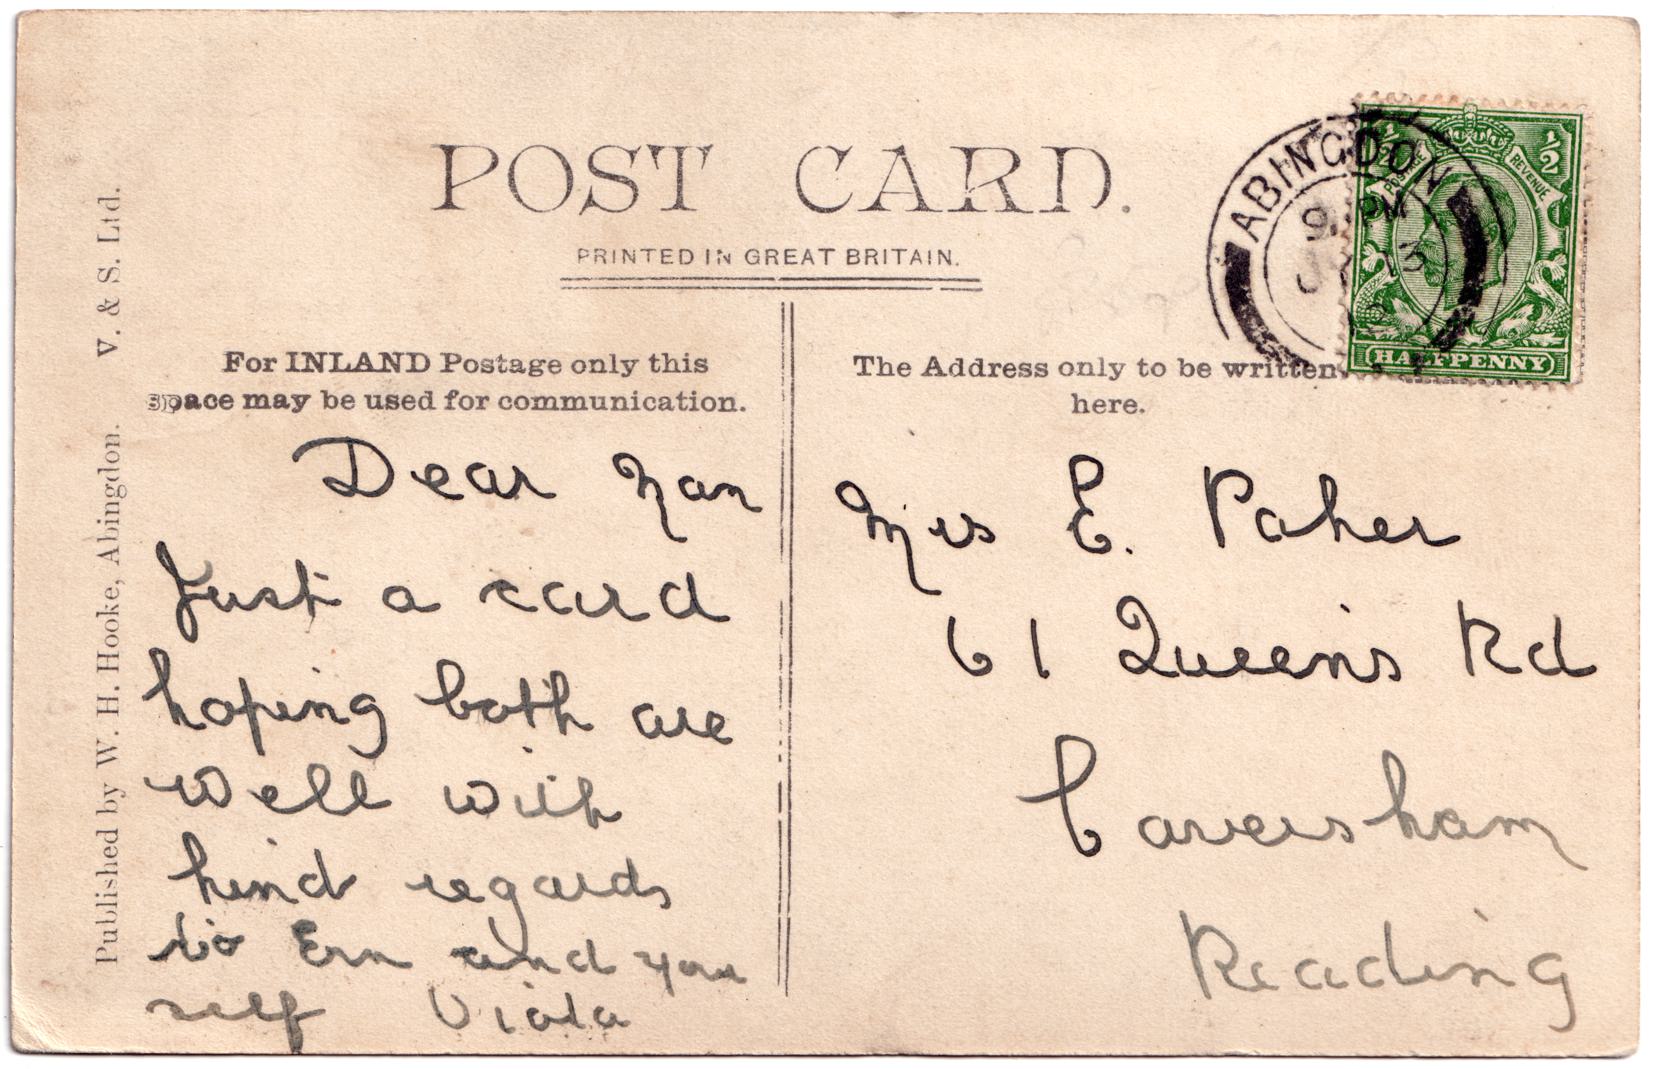 POST CARD.
PRINTED IN GREAT BRITAIN.
Published by W. H. Hooke, Abingdon. V. & S. Ltd.
For INLAND Postage only this
space may be used for communication.
Dear Nan
Just a card
hoping both are
well with
kind regards
to Ern and your
self Viola
The Address only to be written
here.
Mrs E. Paher
61 Queens Rd
Caversham
Reading
ABINGDON
POSTAGE
REVENUE
½
½
HALFPENNY